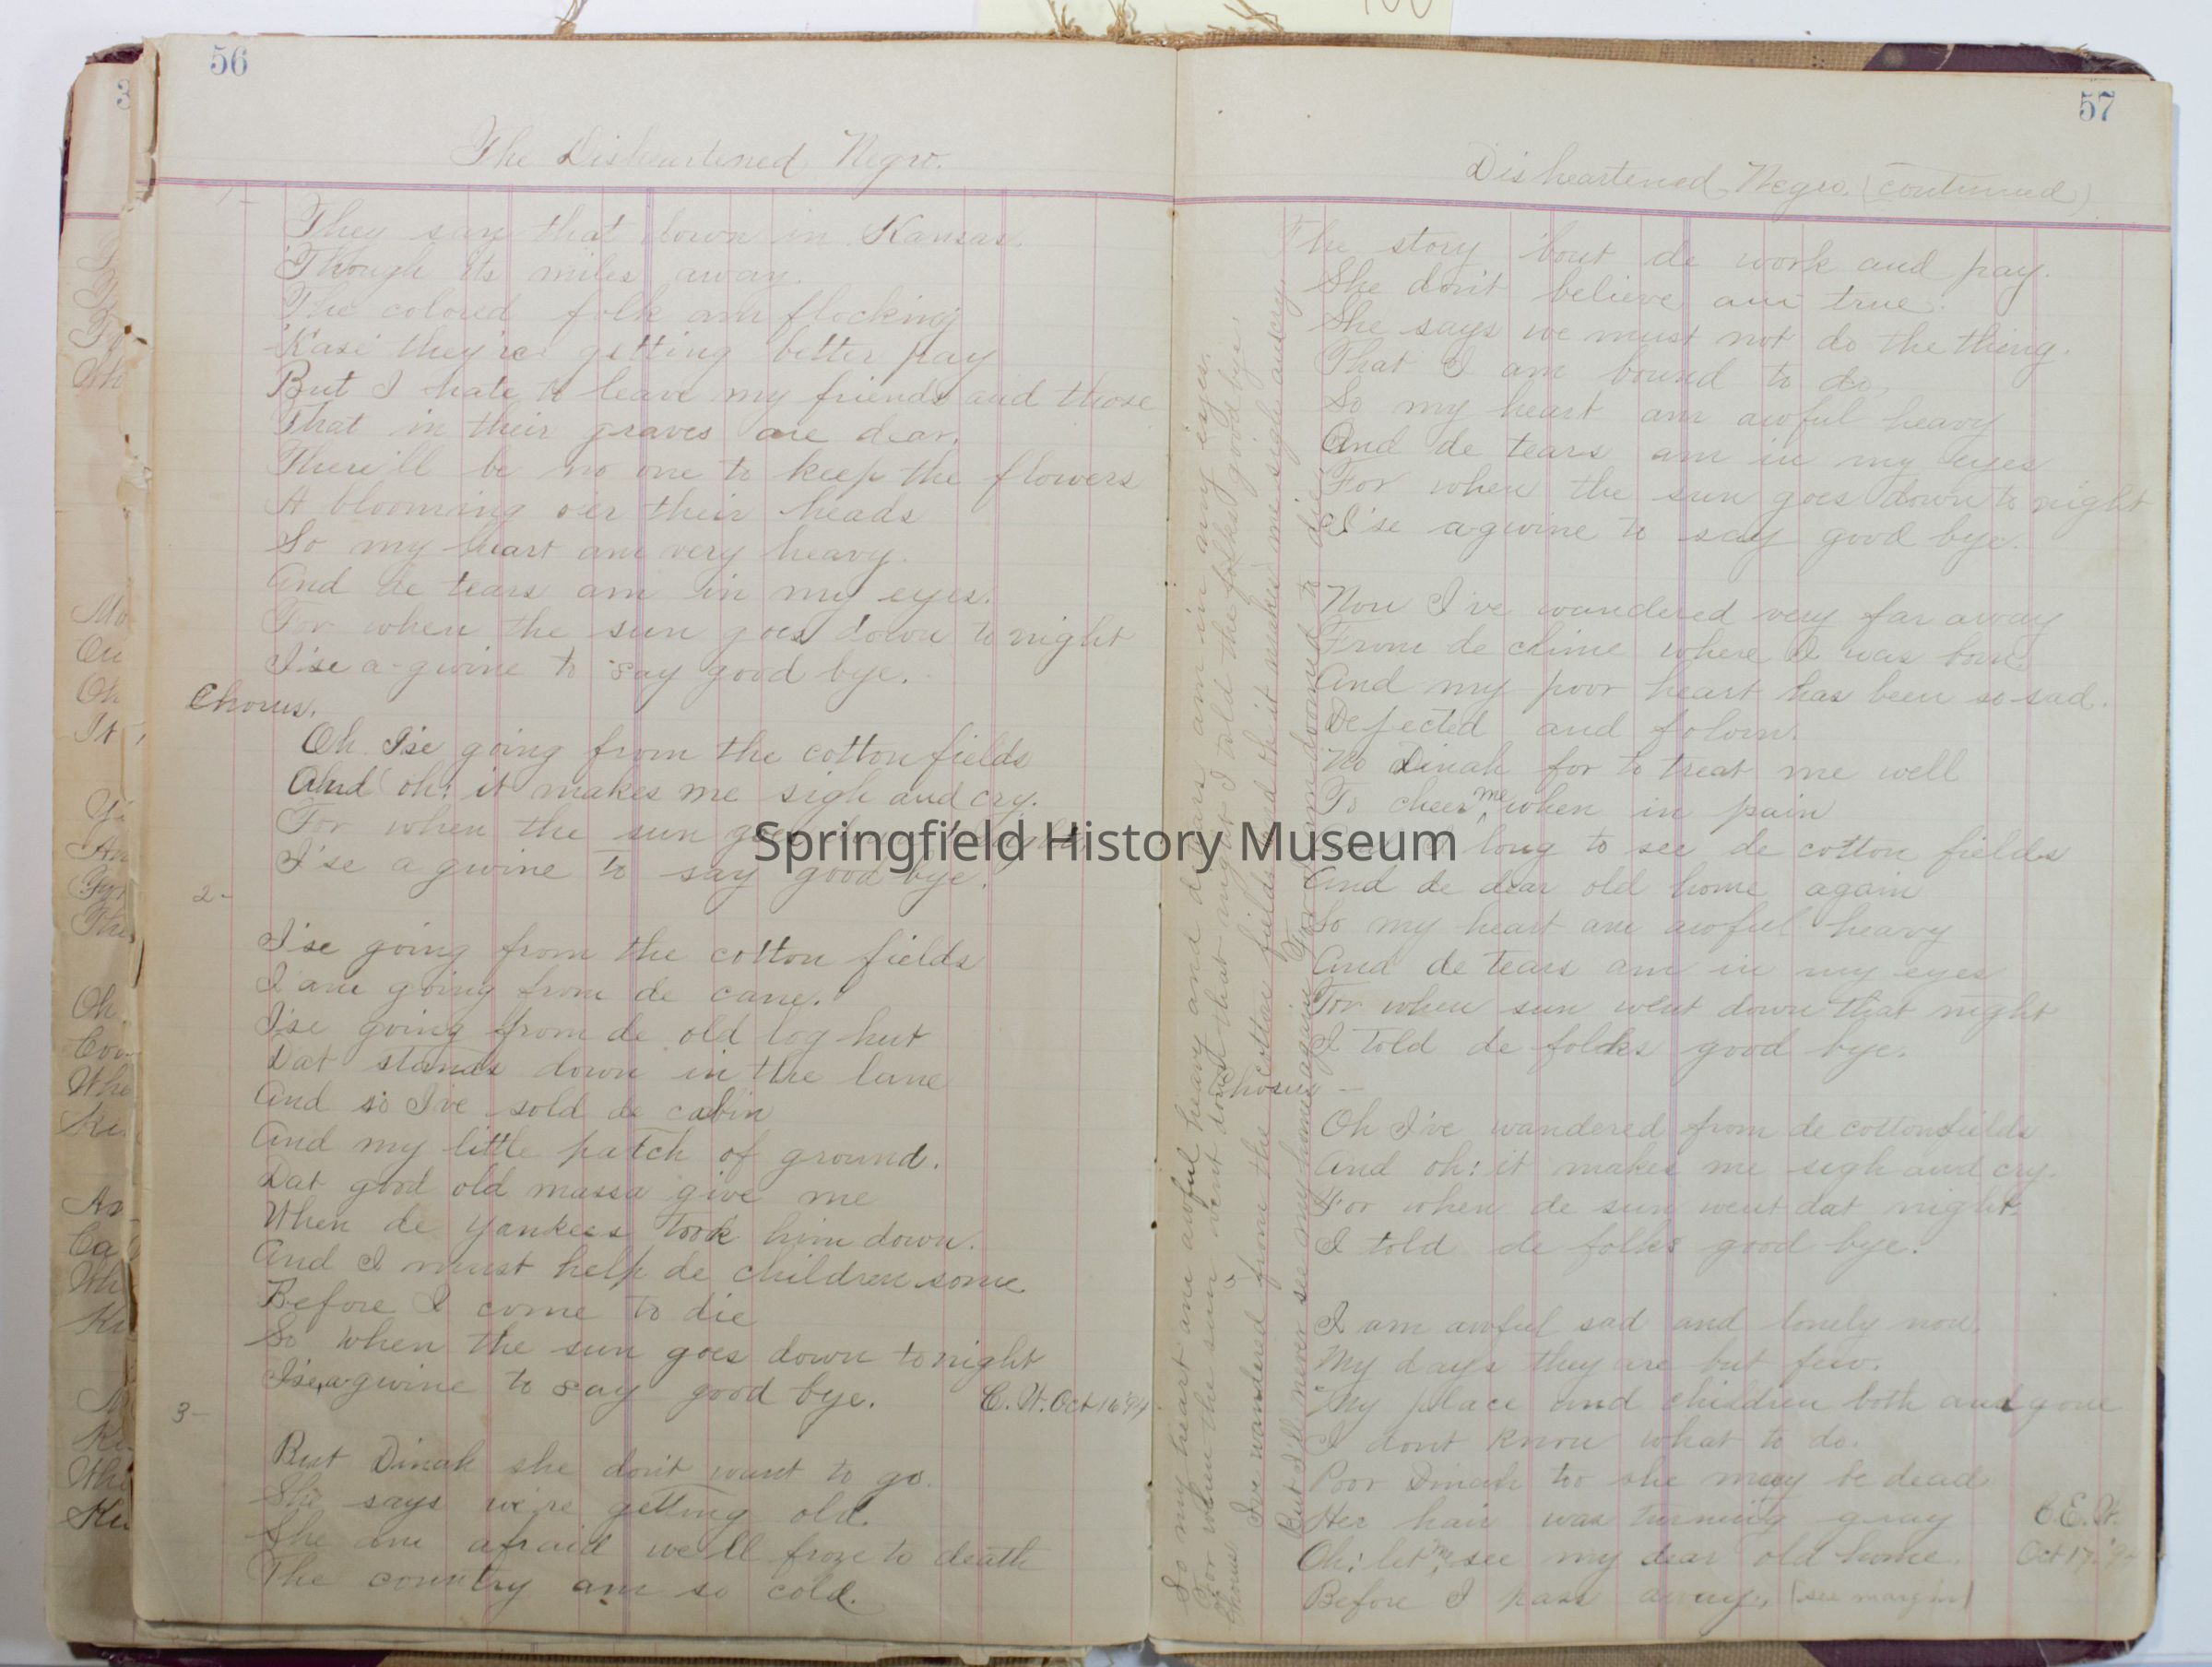 56
The Disheartened Negro.
1-
They say that down in Kansas.
Though its miles away.
The colored folk am flocking
'Kase they're getting better pay
But I hate to leave my friends and those
That in their graves are dear.
There'll be no one to keep the flowers
A blooming o'er their heads
So my heart am very heavy.
And de tears am in my eyes.
For when the sun goes down to night
I'se a-gwine to say good bye.
Chorus.
Oh I'se going from the cotton fields
And oh! it makes me sigh and cry.
For when the sun goes down to night
I'se a gwine to say good bye.
2-
I'se going from the cotton fields
I am going from de cane.
I'se going from de old log hut
Dat stands down in the lane
And so I've sold de cabin
And my little patch of ground.
Dat good old massa give me
When de Yankees took him down.
And I must help de children some
Before I come to die
So when the sun goes down to night
I'se a-gwine to say good bye.
C. H. Oct 16 '94
3-
But Dinah she don't want to go.
She says we're getting old.
She am afraid we'll froze to death
The country am so cold.
57
Disheartened Negro. (continued)
The story 'bout de work and pay.
She don't believe am true.
She says we must not do the thing.
That I am bound to do.
So my heart am awful heavy
And de tears am in my eyes
For when the sun goes down to night
I'se agwine to say good bye.
Now I've wandered very far away
From de clime where I was born.
And my poor heart has been so sad.
Dejected and folorn.
No Dinah for to treat me well
To cheer me when in pain
long to see de cotton fields
And de dear old home again
So my heart am awful heavy
And de tears am in my eyes
For when sun went down that night
I told de folcks good bye.
Chorus -
Oh I've wandered from de cottonfields
And oh! it makes me sigh and cry.
For when de sun went dat night.
I told de folks good bye.
I am awful sad and lonely now.
My days they are but few.
My place and children both and gone
I dont know what to do.
Poor Dinah too she may be dead
Her hair was turning gray
C. E. H.
Oh! let me see my dear old home.
Oct 17, '9
Before I pass away. [see margin]
So my heart am awful heavy and de tears am in my eyes.
For when the sun went down that night I told the folks good bye.
Chorus
I've wandered from the cotton fields and oh it makes me sigh and cry
But I'll never see my home again For I am doomed to die
Springfield History Museum